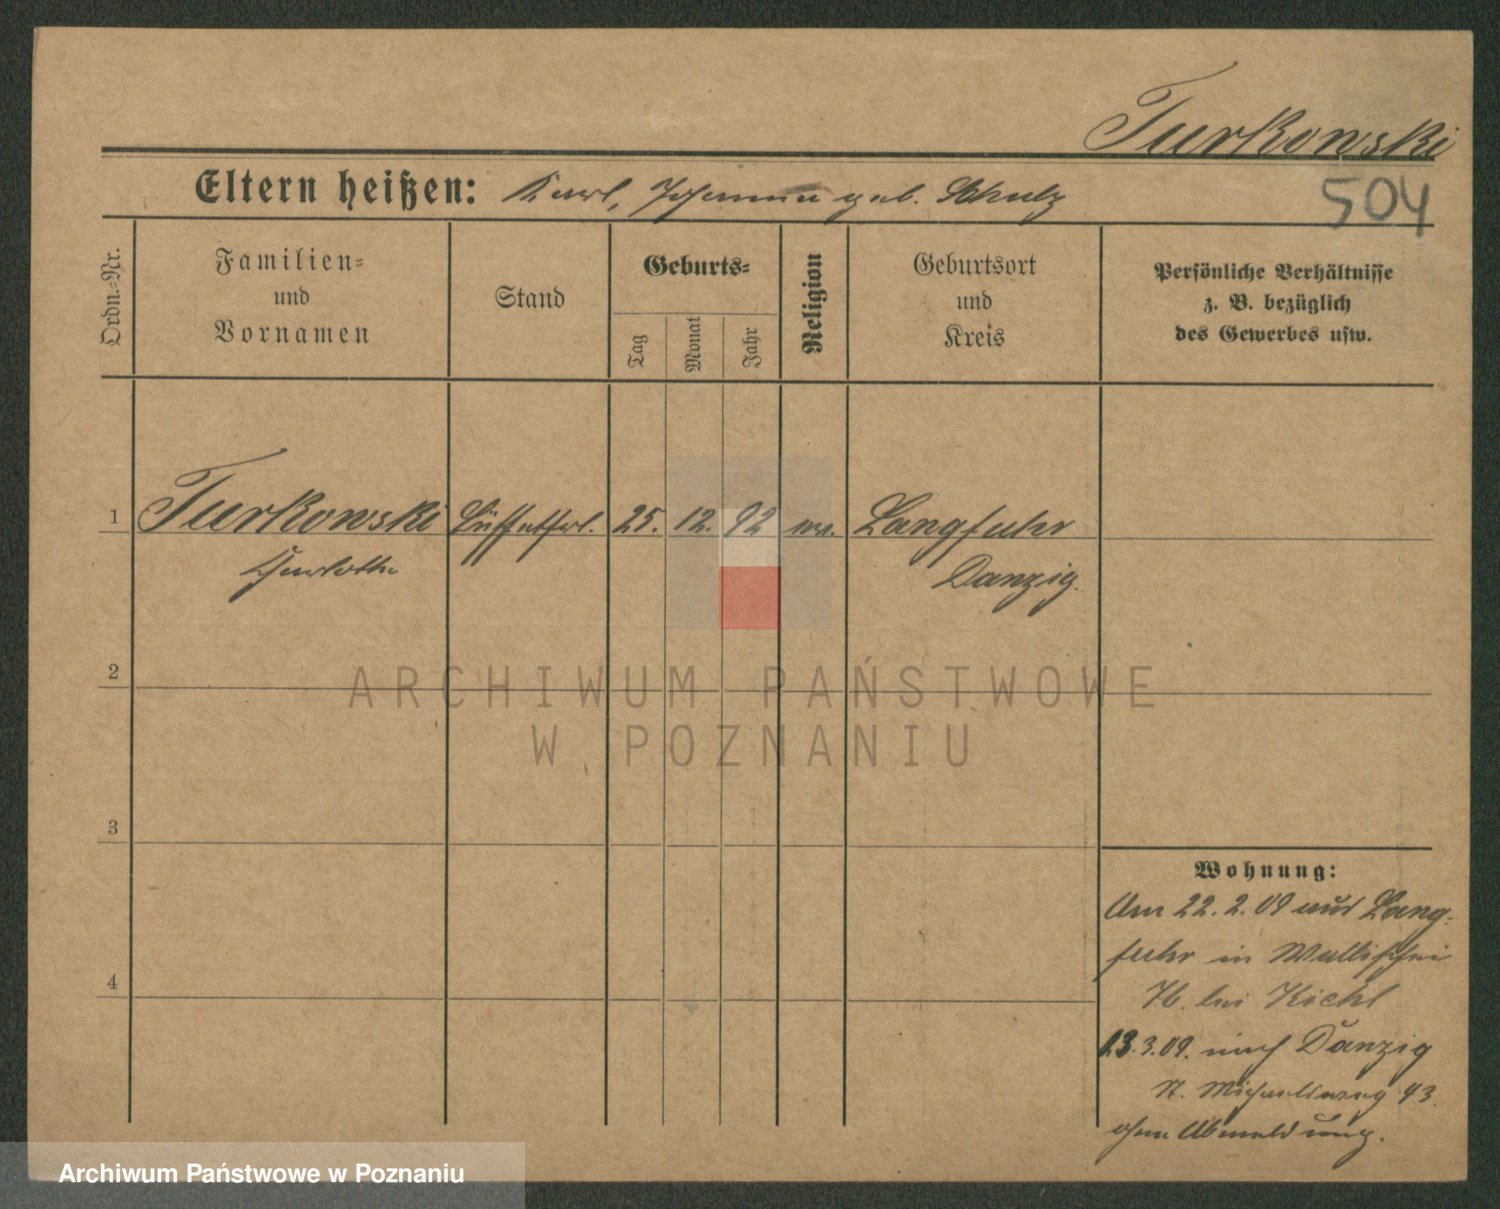 Turkowski
Eltern heißen: Karl, Johanna geb. Schulz
504
Ordn.-Nr.
Familien-
und
Vornamen
Stand
Geburts-
Tag
Monat
Jahr
Religion
Geburtsort
und
Kreis
Persönliche Verhältnisse
z. B. bezüglich
des Gewerbes usw.
1 Turkowski Büffetfrl. 25. 12. 92 ev. Langfuhr
Charlotte Danzig.
2
ARCHIWUM PAŃSTWOWE
W POZNANIU
3
Wohnung:
Am 22. 2. 09 aus Lang-
fuhr in Wallischei
bei Kiehl
13.3.09. nach Danzig
St. Michaelsweg 43.
ohne Abmeldung.
4
Archiwum Państwowe w Poznaniu